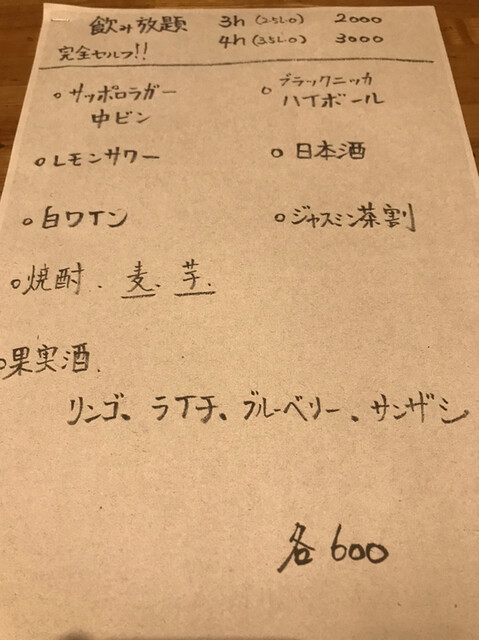 飲み放題 3h (2.5L.O) 2000
4h (3.5L.O) 3000
完全セルフ!!
○サッポロラガー
中ビン
○ブラックニッカ
ハイボール
○レモンサワー
○日本酒
○白ワイン
○ジャスミン茶割
○焼酎、麦、芋、
○果実酒、
リンゴ、ライチ、ブルーベリー、サンザシ
各600